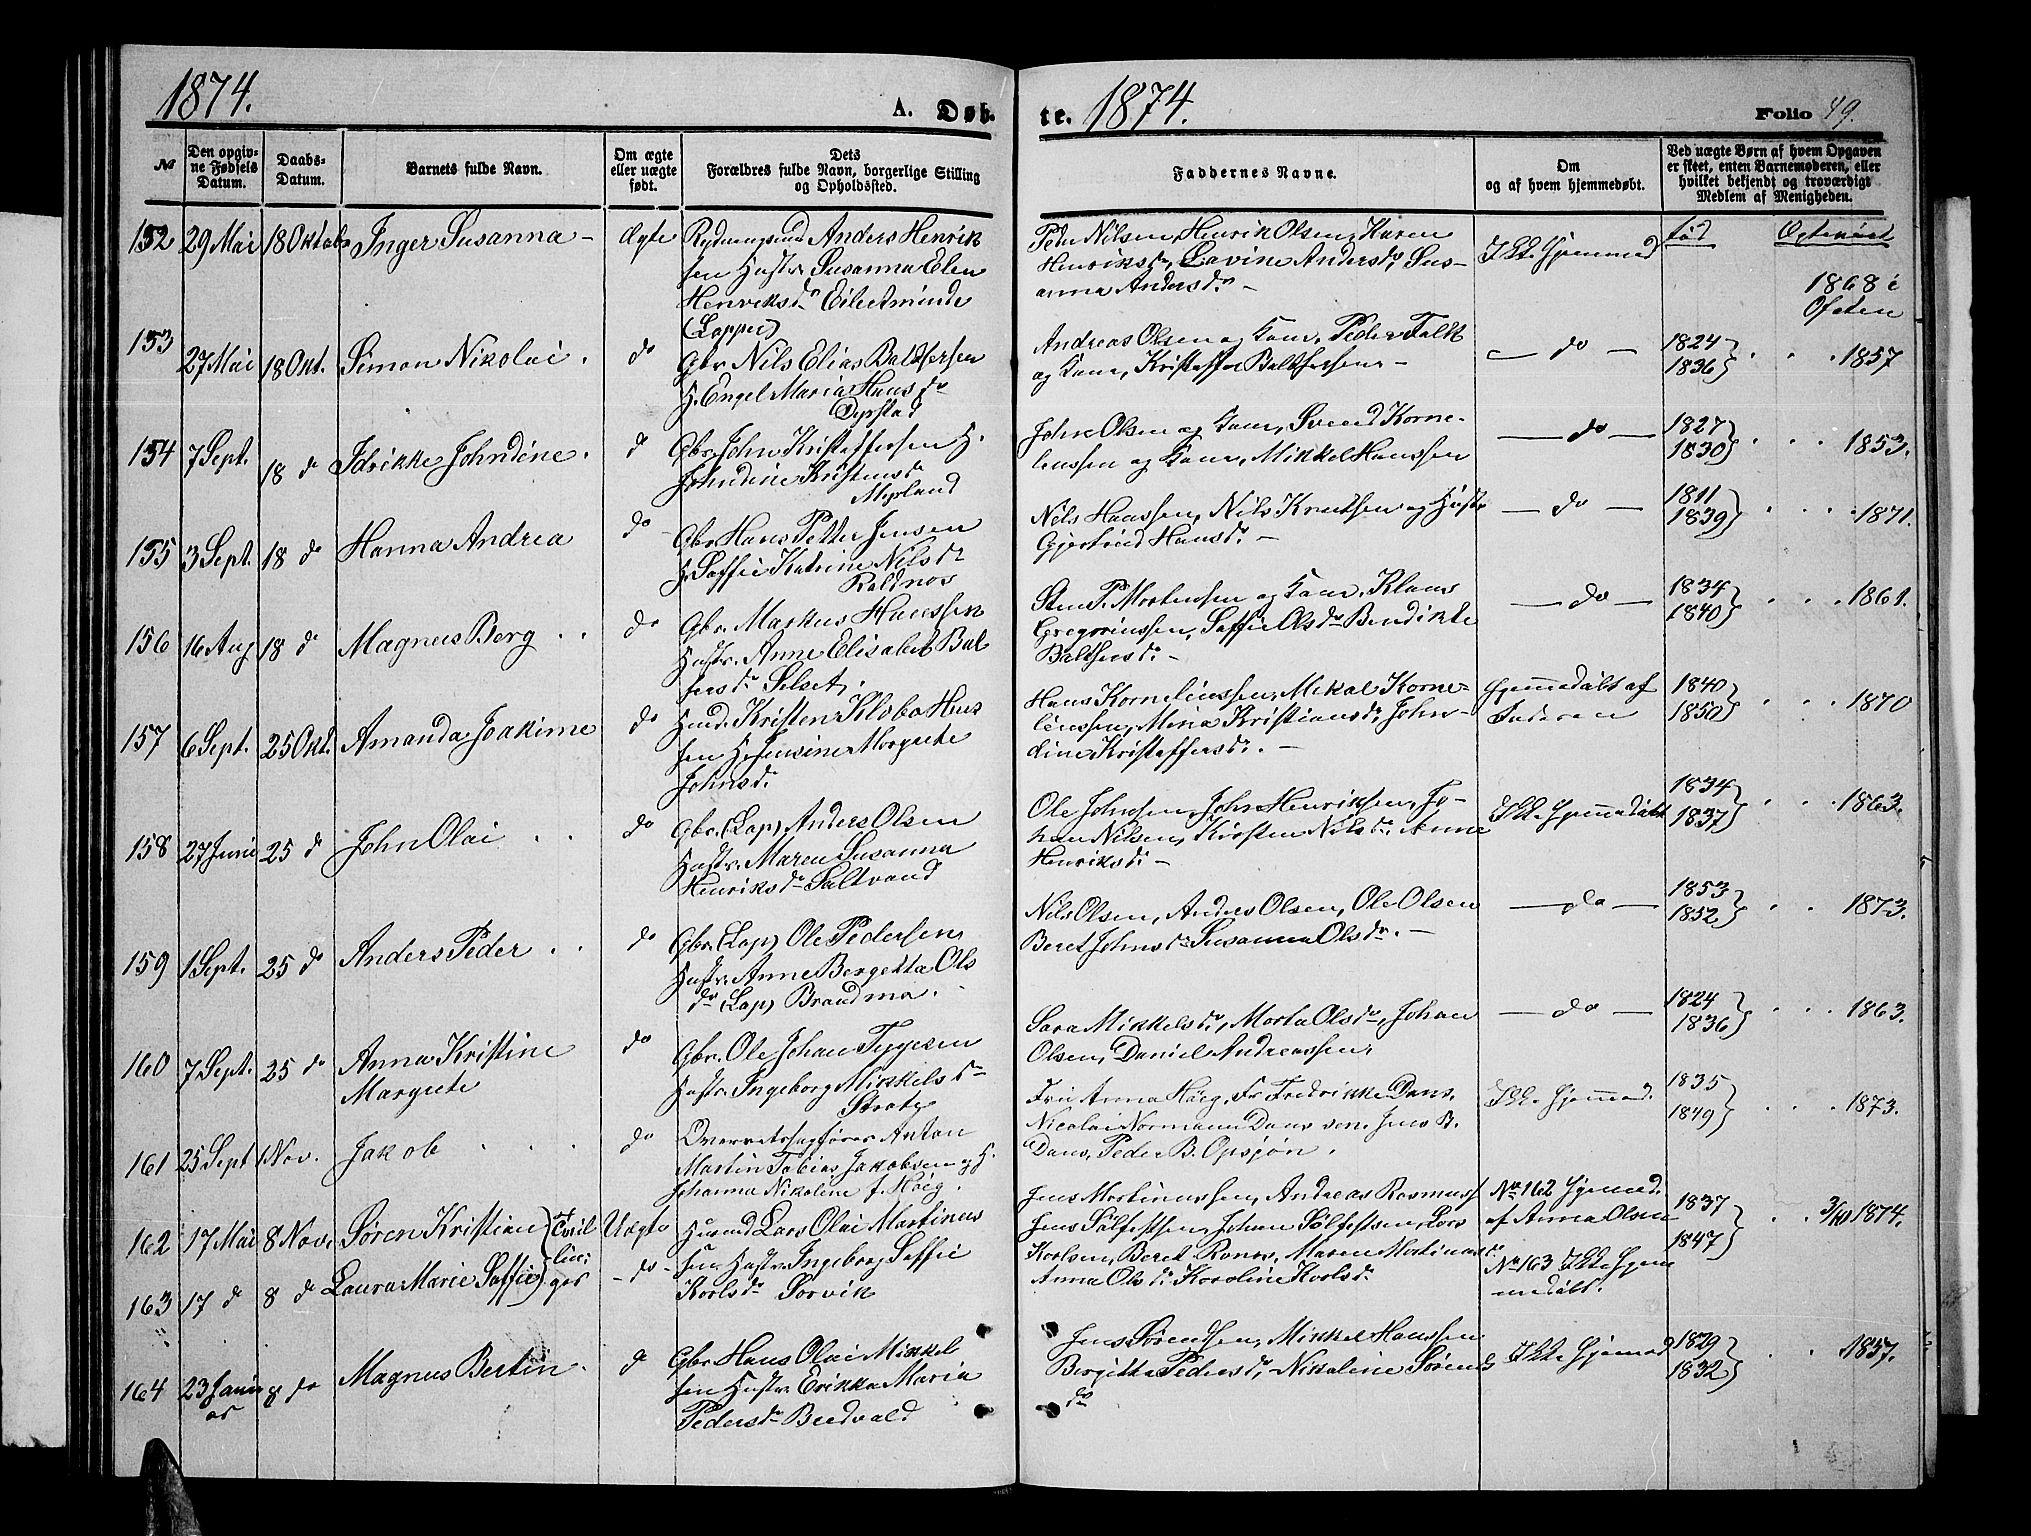 1874.
A. Døb-
te. 1874.
Folio 49.
№
Den opgiv-
ne Fødsels
Datum.
Daabs-
Datum.
Barnets fulde Navn.
Om ægte
eller uægte
født.
Dets
Forældres fulde Navn, borgerlige Stilling
og Opholdssted.
Faddernes Navne.
Om
og af hvem hjemmedøbt.
Ved uægte Børn af hvem Opgaven
er skeet, enten Barnemoderen, eller
hvilket bekjendt og troværdigt
Medlem af Menigheden.
152 29 Mai 18 Oktobr Inger Susanna – Ægte
Anders Henrik
sen Hustr. Susanna Elen
Henriksdr
(Lapper)
Peder Nilsen, Henrik Olsen, Karen
Henriksdr, Lavine Andersdr, Sus-
anna Andersdr. –
Ikke Hjemmed
fød
1868 i
Ofoten
153 27 Mai 18 Okt. Simon Nikolai . do
Gbr. Nils Elias Baltsersen
H. Engel Maria Hansdr
Dyrstad
Andreas Olsen og Kone, Peder Falk
og Kone, Kristoffer Baltsersen –
– do –
1824
1836 } . . . 1857
154 7 Sept. 18 do Idrikke Johndine . d
Gbr. John Kristoffersen H.
Johndine Kristensdr
Myrland
John Olsen og Kone, Svend Korne-
liussen og Kone, Mikkel Hanssen
– do –
1827
1830 } . . . 1853.
155 3 Sept. 18 do Hanna Andrea do
Gbr. Hans Petter Jensen
H. Soffie Katrine Nilsdr
Nils Hanssen, Nils Knutsen og Hustr
Gjertrud Hansdr. –
– do –
1811
1839 } . . . 1871.
156 16 Aug 18 do Magnus Berg . . do
Gbr. Markus Hanssen
Hustr. Anne Elisabet Bal
sersdr Selset.
Sten P. Mortensen og Kone, Klaus
Gregoriussen, Soffie Olsdr Bendikte
Baltsersdr. –
– do –
1834
1840 } . . . 1861.
157 6 Sept. 25 Okt. Amanda Joakime do
Husmd. Kristen Klobo Hans
sen H. Jensine Margrete
Johnsdr
Hans Korneliussen, Mikal Korne-
liussen, Mina Kristiansdr, John-
dine Kristoffersdr. –
Hjemmedøbt af
1840
1850 } . . . 1870
158 27 Juni 25 d John Olai . . do
Gbr. (Lap) Anders Olsen
Hustr. Maren Susanna
Henriksdr Saltvand
Ole Johnssen, John Henriksen, Jo-
han Nilsen, Kirsten Nilsdr, Anne
Henriksdr –
Ikke Hjemmedøbt
1834
1837 } . . . 1863.
159 1 Sept. 25 do Anders Peder . . do
Gbr. (Lap) Ole Pedersen
Hustr. Anne Bergetta Ols
dr (Lap) Brandmo .
Nils Olsen, Anders Olsen, Ole Olsen
Beret Johnsdr Susanna Olsdr. –
– do –
1853
1852 } . . . 1873.
160 7 Sept. 25 do Anna Kristine
Margrete do
Gbr. Ole Johan Tygesen
Hustr. Ingeborg Mikkelsdr
Sara Mikkelsdr, Marta Olsdr, Johan
Olsen, Daniel Andreassen.
– do –
1824
1836 } . . . 1863.
161 25 Sept 1 Nov. Jakob . . . do
Overretssagfører Anton
Martin Tobias Jakobsen og H.
Johanna Nikoline f. Höeg .
Anna Höeg, Fr Fredrikke Dans,
Nicolai Normann Dans sen. Jens B.
Dans, Peder B. Opsjøn .
Ikke Hjemmed.
1835
1849 } . . . 1873.
162 17 Mai 8 Nov. Søren Kristian Uægte
163 17 do 8 do Laura Marie Soffie – do –
Tvil
lin-
ger
Husmd Lars Olai Martinus
sen Hustr. Ingeborg Soffie
Karlsdr Sørvik
Jens Martinussen, Andreas Rasmuss
Jens Sølfestsen, Johan Sølfestsen, Lars
Karlsen, Beret Ronos, Maren Martinusdr
Anna Olsdr Karoline Karlsdr
No 162 Hjemmed.
af Anna Olsen
No 163 Ikke Hjem
medøbt.
1837
1847 } . . 3/10 1874.
164 23 Janu
ar 8 do Magnus Bertin . d
Gbr Hans Olai Mikkel
sen Hustr. Erikka Maria
Pedersdr Bredvald
Jens Sørensen, Mikkel Hanssen
Bergitta Pedersdr, Nikoline Sørens
dr
Ikke Hjemmed
1829
1832 } . . . 1857.